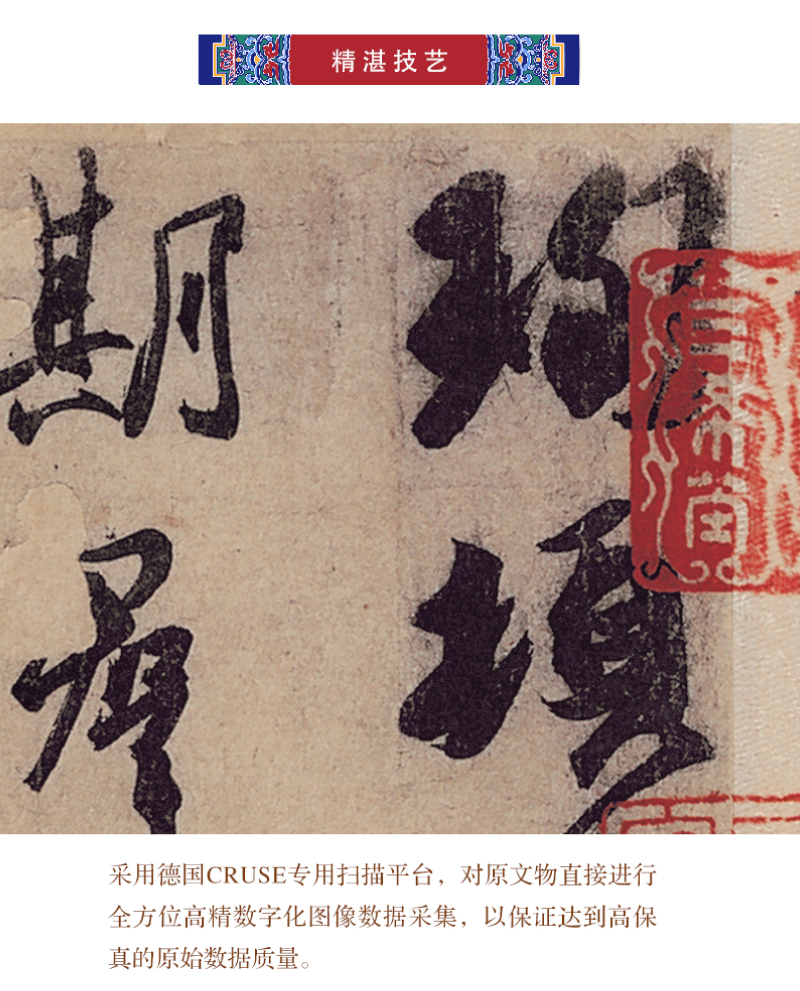 精湛技艺
珣頓
期羣
采用德国CRUSE专用扫描平台，对原文物直接进行
全方位高精数字化图像数据采集，以保证达到高保
真的原始数据质量。